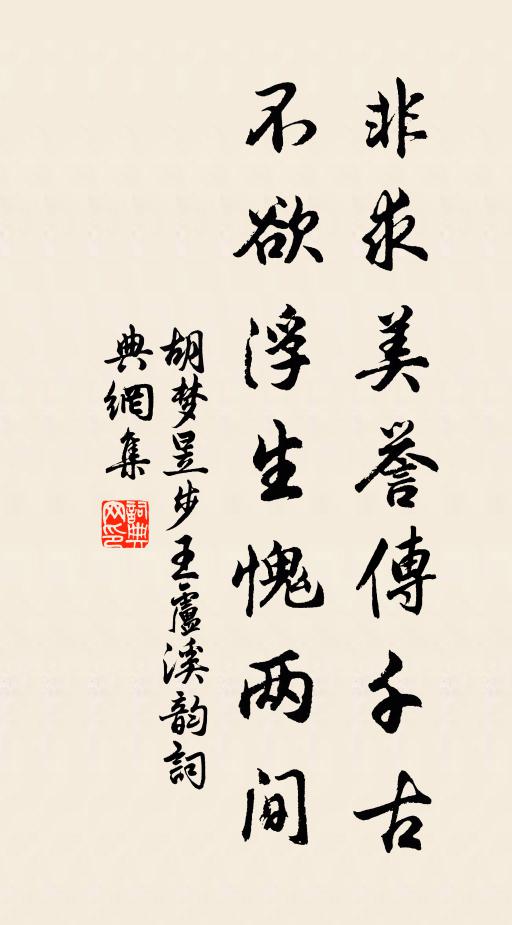 非求美誉傳千古
不欲浮生愧两间
胡梦昱步王盧溪韵詞
典網集
詞典
网印